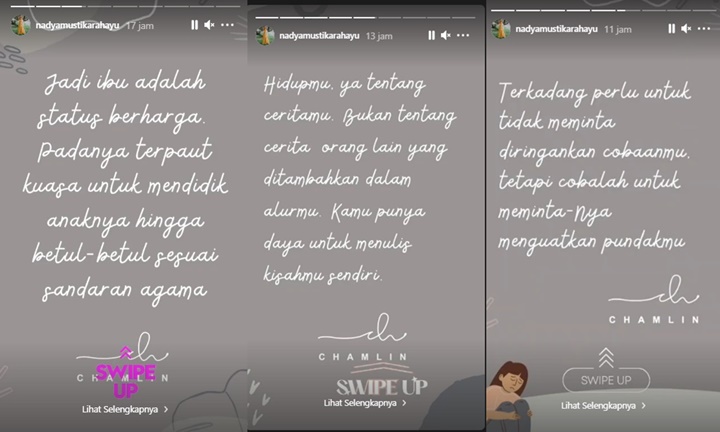 nadyamustikarahayu 17 jam
Jadi ibu adalah
status berharga.
Padanya terpaut
kuasa untuk mendidik
anaknya hingga
betul-betul sesuai
sandaran agama
ch
CHAMLIN
SWIPE
UP
Lihat Selengkapnya
nadyamustikarahayu 13 jam
Hidupmu, ya tentang
ceritamu. Bukan tentang
cerita orang lain yang
ditambahkan dalam
alurmu. Kamu punya
daya untuk menulis
kisahmu sendiri.
ch
CHAMLIN
SWIPE UP
Lihat Selengkapnya
nadyamustikarahayu 11 jam
Terkadang perlu untuk
tidak meminta
diringankan cobaanmu,
tetapi cobalah untuk
meminta-Nya
menguatkan pundakmu
ch
CHAMLIN
SWIPE UP
Lihat Selengkapnya